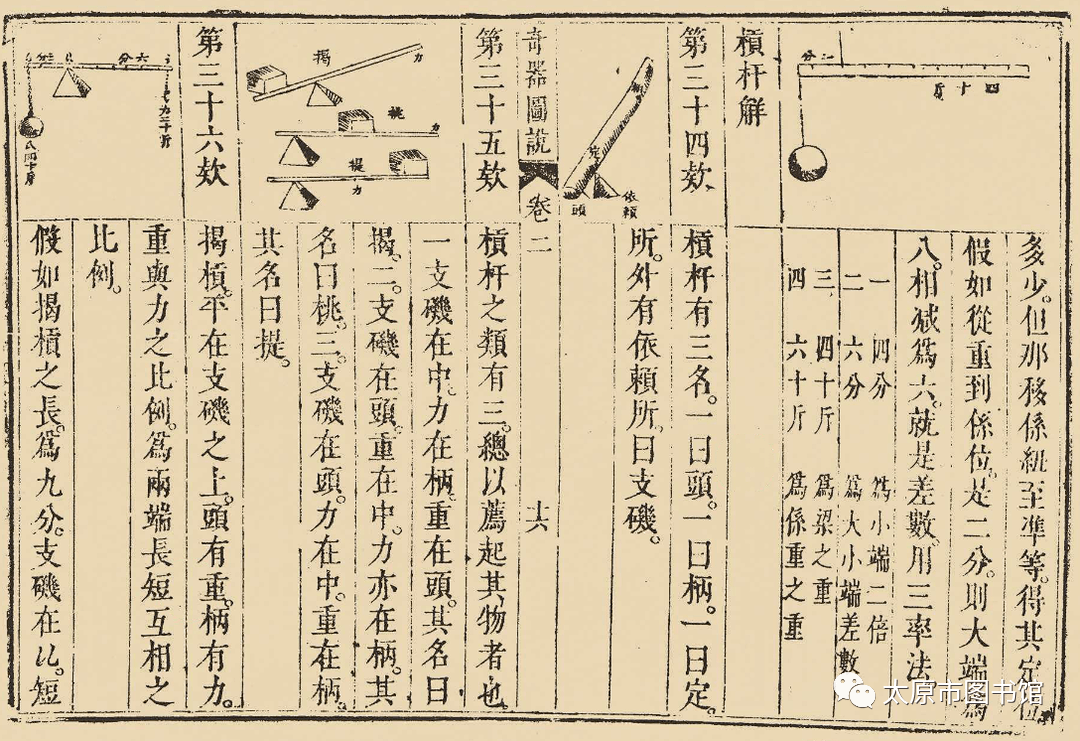 多少但那移係紐至準等得其定位
假如從重到係位是二分則大端爲
八相減爲六就是差數用三率法
一 四分 爲小端二倍
二 六分 爲大小端差數
三 四十斤 爲梁之重
四 六十斤 爲係重之重
二分
四十斤
槓杆解
第三十四欵
定
頭
依賴
槓杆有三名一曰頭一曰柄一曰定
所外有依賴所曰支磯
奇器圖說
卷二
十六
第三十五欵
揭
力
挑
力
提
力
槓杆之類有三總以薦起其物者也
一支磯在中力在柄重在頭其名曰
揭二支磯在頭重在中力亦在柄其
名曰挑三支磯在頭力在中重在柄
其名曰提
第三十六欵
六分
揭槓平在支磯之上頭有重柄有力
重與力之比例爲兩端長短互相之
比例
假如揭槓之長爲九分支磯在比短
太原市图书馆